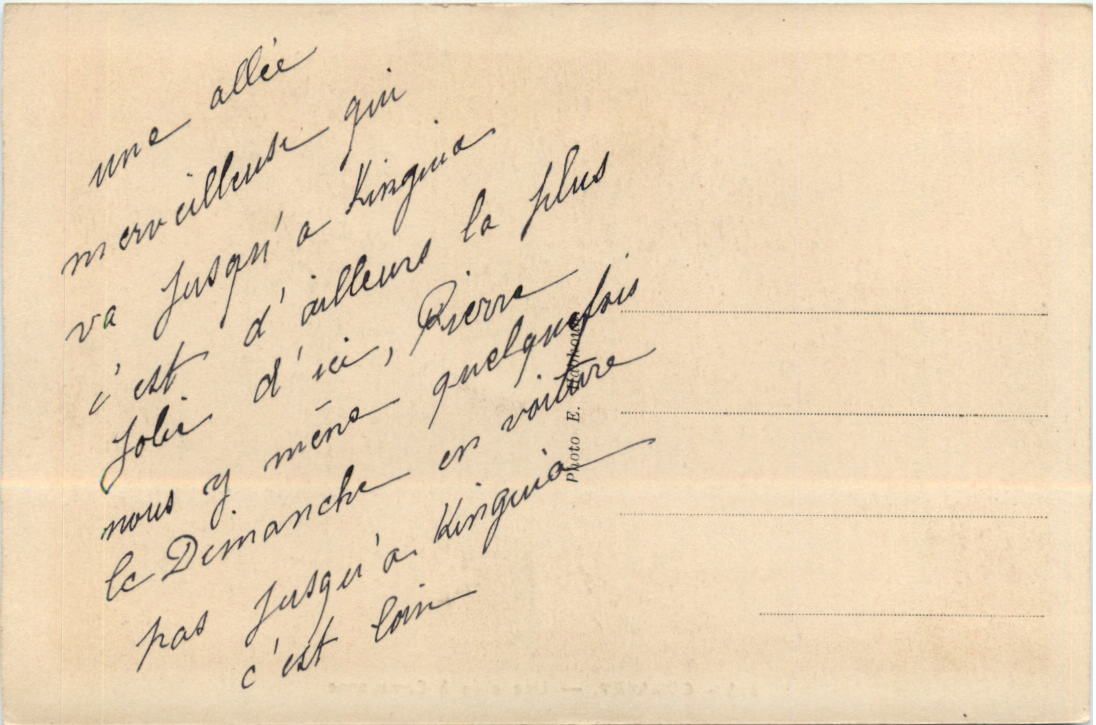 une allée
merveilleuse qui
va jusqu'a Kinguia
c'est d'ailleurs la plus
Jolie d'ici, Pierre
nous y mène quelquefois
le Dimanche en voiture
pas jusqu'a Kinguia
c'est loin
Photo E.